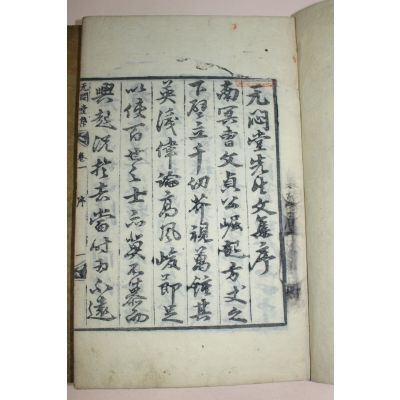 无悶堂先生文集序
南冥曺文貞公崛起方丈之
下壁立千仞芥視萬鍾其
英濬偉論高風峻節足
以使百世之士亦莫不慕而
興起況於去當時為不遠
无悶堂集 卷一 序 一